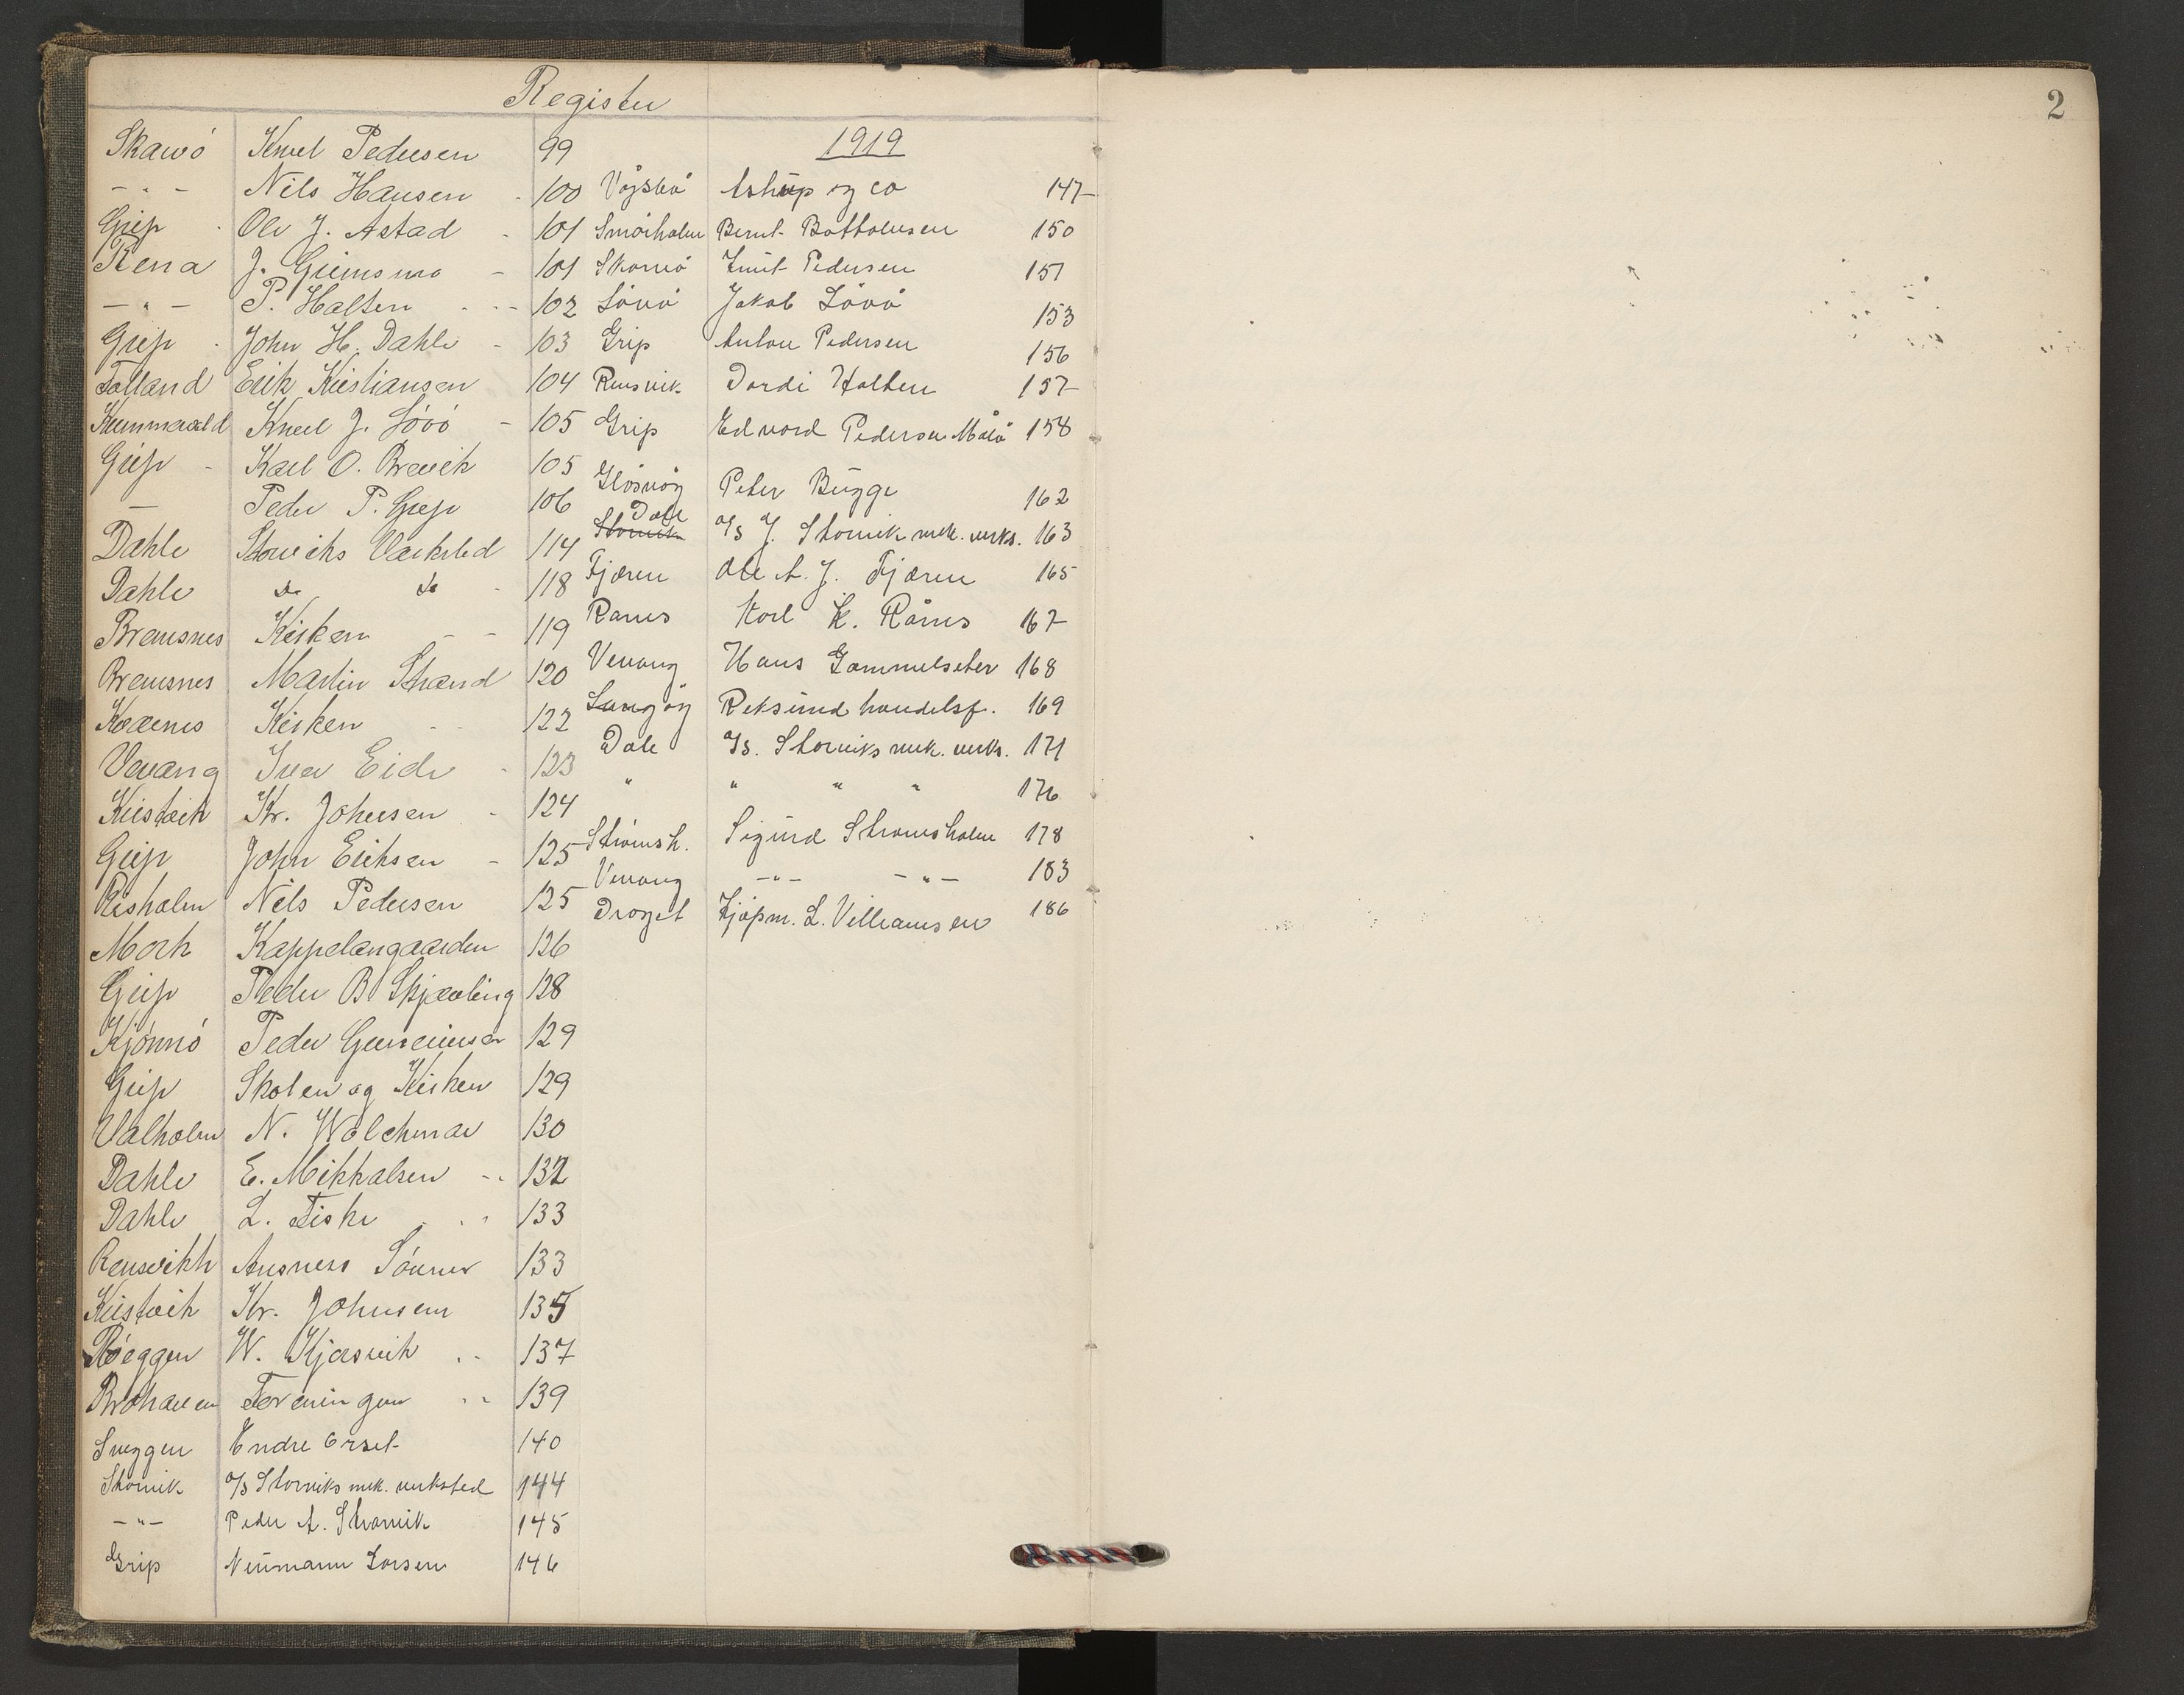 Register
2
Skarvö Knut Pedersen 99
- " - Nils Hansen - 100
Grip Ole J. Astad - 101
Rena J. Grimsmo - 101
- " - P. Holten 102
Grip John H. Dahle - 103
Folland Erik Kristiansen 104
Knut J. Lövö - 105
Grip - Karl O. Brevik 105
— Peder P. Grip 106
Dahle Storviks Værksted 114
Dahle Do do - 118
Bremsnes Kirken - - 119
Bremsnes Martin Strand 120
Kværnes Kirken - - 122
Vevang Iver Eide - 123
Kristvik Kr. Johnsen - 124
Grip John Eriksen - 125
Risholm Nils Pedersen 125
Mork Kappelangaarden 126
Grip Peder B Skjærling 128
Kjönnö Peder 129
Grip Skolen og Kirken 129
Valholm N. Wolchmar 130
Dahle E. Mikkalsen - - 132
Dahle L. Fiske 133
Rensvikh Ansnes Sönner 133
Kristvik Kr. Johnsen 135
Röeggen W. Kjörsvik 137
Brohaven Foreningen 139
Sveggen Endre Orset 140
Storvik A/S Storviks mek. verksted 144
- " - Peder A. Storvik 145
Grip Neumann Larsen 146
1919
Vågsbö Astrup og co 147
Smörholm Bernt Bottolvsen 150
Skarvö Knut Pedersen 151
Lövö Jakob Lövö 153
Grip Anton Pedersen 156
Rensvik Dordi Holten 157
Grip Edvard Pedersen Målö 158
Glosvåg Peter Bugge 162
Dale
Storvik A/S J. Storvik mek. verks. 163
Fjæren Ole A. J. Fjæren 165
Rams Karl K. Råms 167
Vevang Hans Gammelseter 168
Langöy Reksund handelsf. 169
Dale A/S. Storviks mek. verks. 171
" " " " 176
Strömsh. Sigurd Strömsholm 178
Vevang - " - - " - 183
Draget Kjöpm. L. Villiamsen 186